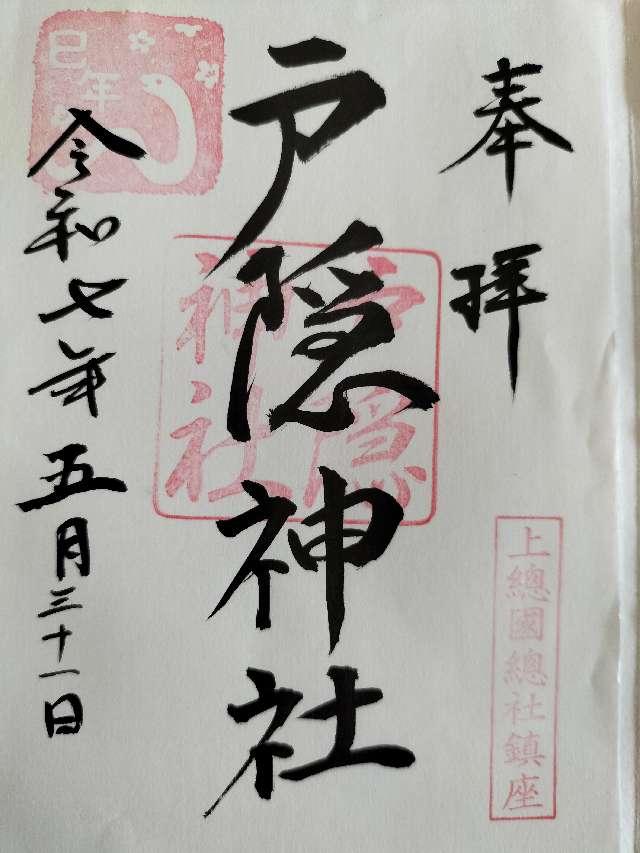 奉拝
上總國總社鎮座
戸隠神社
戸隠神社
巳年
令和七年五月三十一日